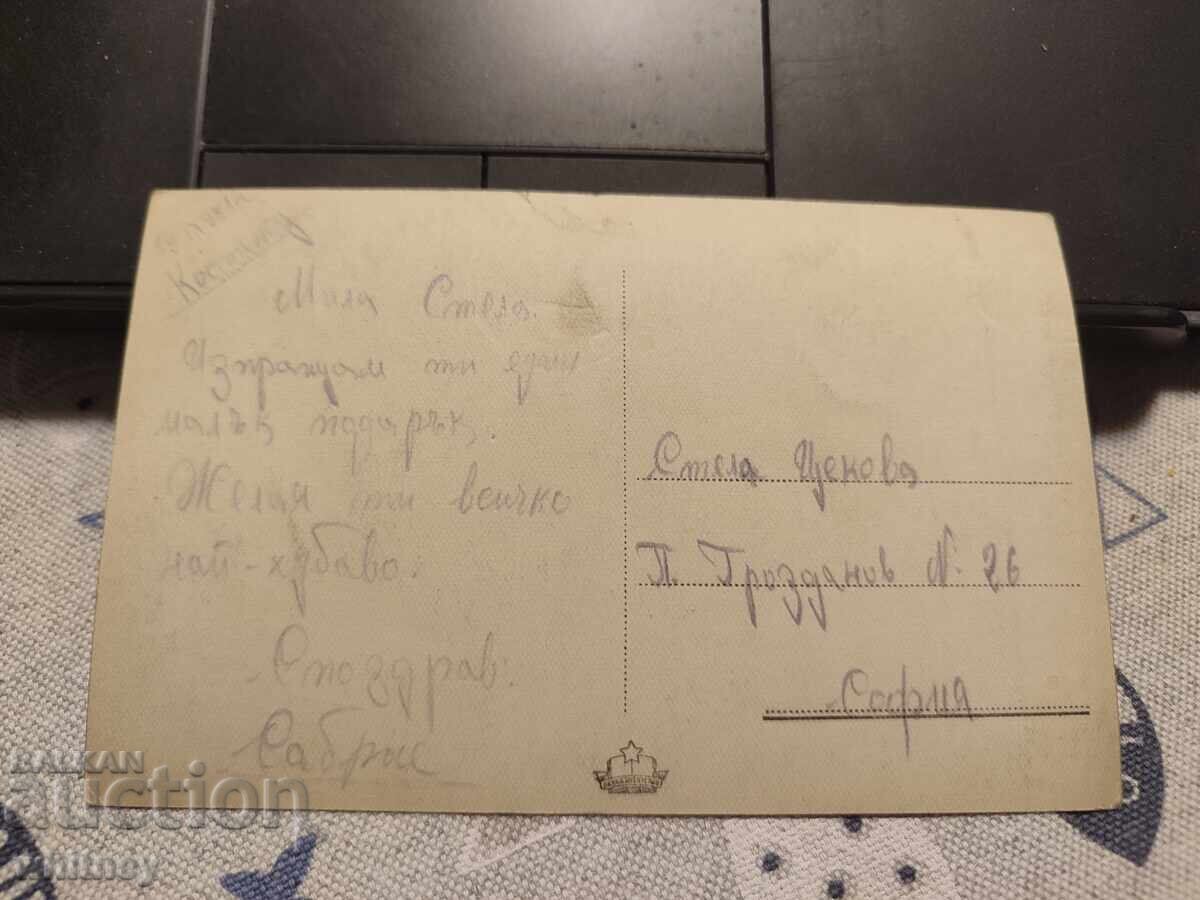 Мила Стела.
Изпращам ти един
малък подарък.
Желая ти всичко
най-хубаво.
С поздрав:
Сабрие
Стела Цекова
П. Грозданов N. 26
София
BALKAN
auction
whitney